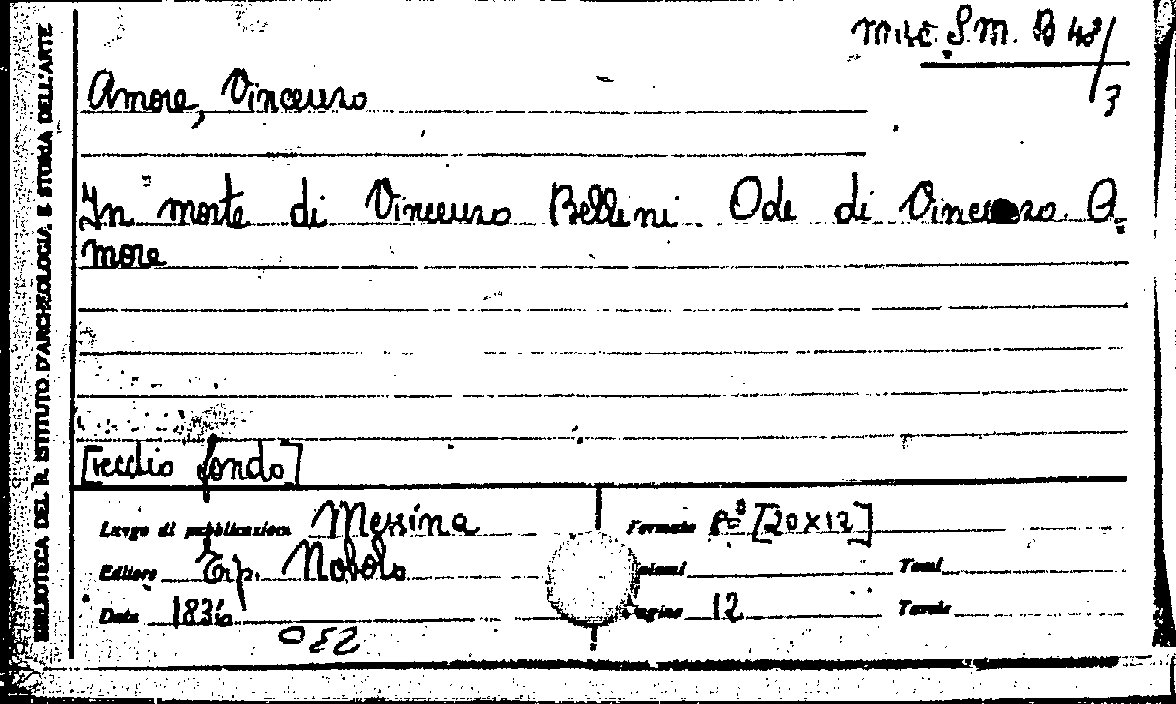 BIBLIOTECA DEL R. ISTITUTO D'ARCHEOLOGIA E STORIA DELL'ARTE
Misc. S.M. B 48/3
Amore, Vincenzo
In morte di Vincenzo Bellini. Ode di Vincenzo A=
more
[Vecchio fondo]
Luogo di pubblicazione Messina
Formato [20x12]
Editore Tip. Nobolo
Volumi
Tomi
Data 1836
Pagine 12
Tavole